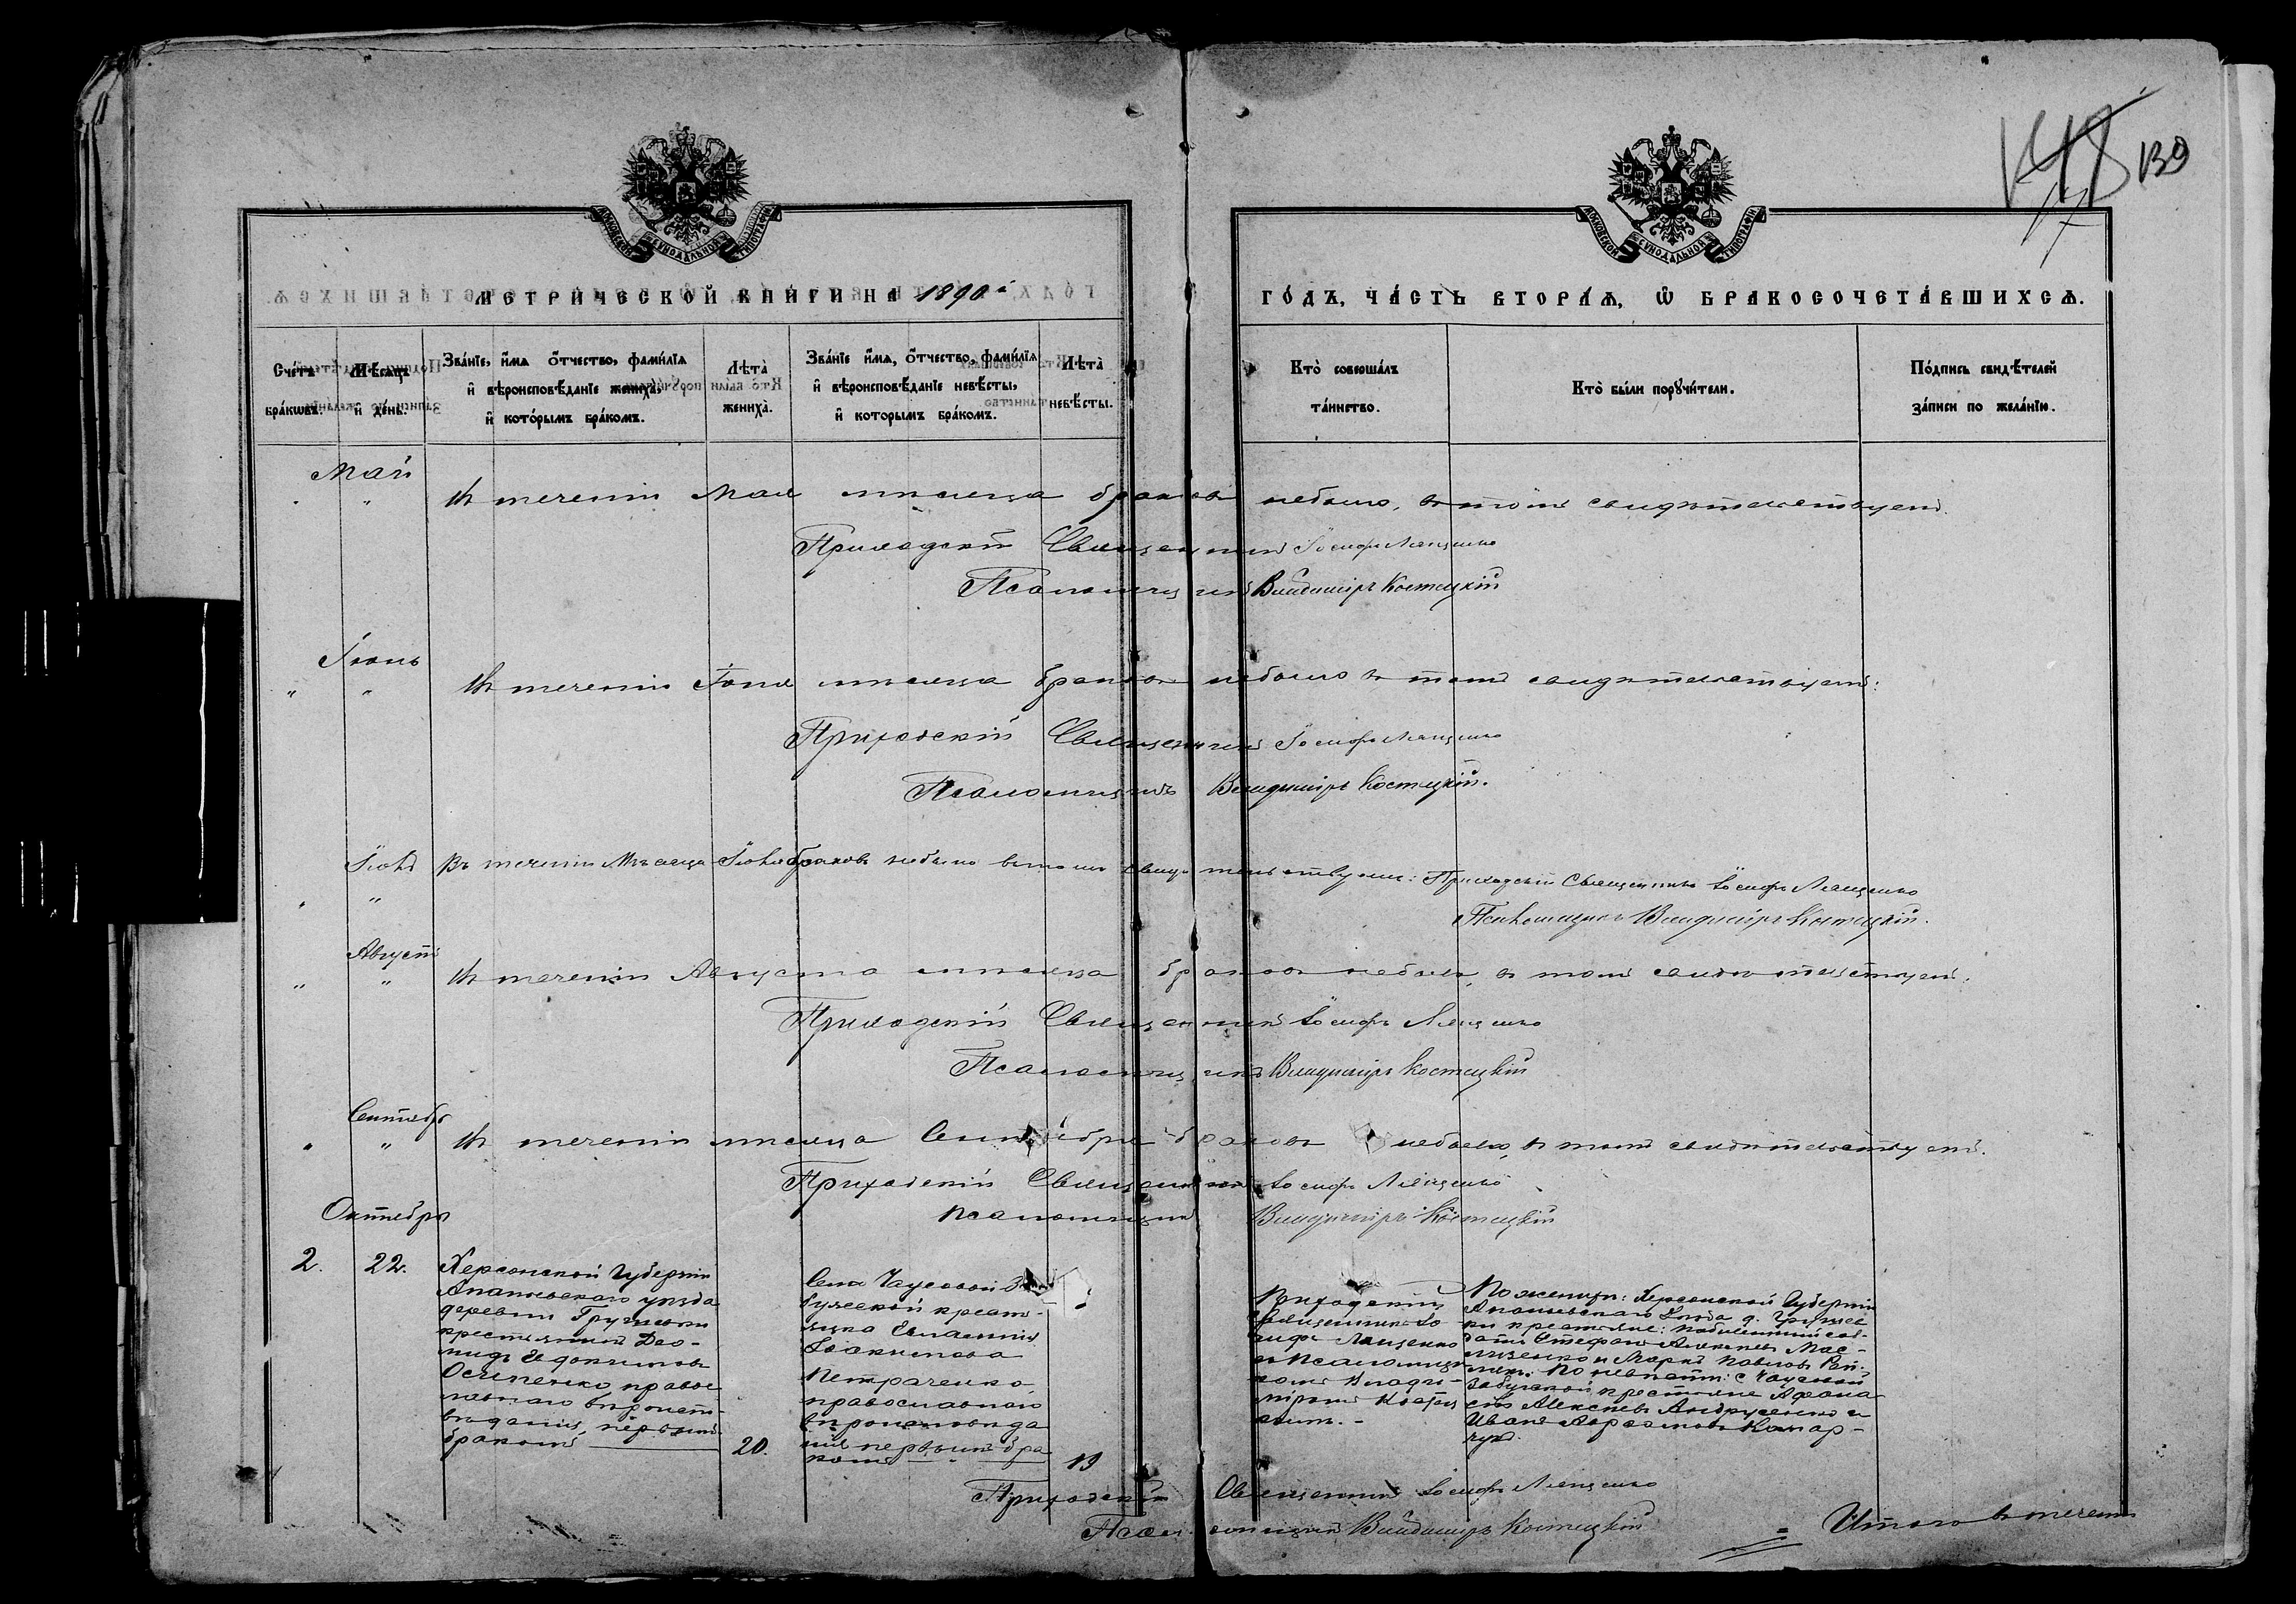 139
МОСКОВСКОЙ СѴНОДАЛЬНОЙ ТИПОГРАФІИ
МОСКОВСКОЙ СѴНОДАЛЬНОЙ ТИПОГРАФІИ
МЕТРИЧЕСКОЙ КНИГИ НА 1890й
ГО́ДЪ, ЧА́СТЬ ВТОРА́Ѧ, Ѡ҆ БРАКОСОЧЕТА́ВШИХСѦ.
Счетъ бра́кѡвъ.
Мѣ́сѧцъ и҆ де́нь.
Зва́нїе, и҆́мѧ о҆́тчество, фамѝлїѧ и҆ вѣроисповѣ́данїе жениха̀, и҆ кото́рымъ бра́комъ.
Лѣта̀ жениха̀.
Зва́нїе и҆́мѧ, о҆́тчество, фамѝлїѧ и҆ вѣроисповѣ́данїе невѣ́сты, и҆ кото́рымъ бра́комъ.
Лѣта̀ невѣ́сты.
Кто̀ соверша́лъ та́инство.
Кто̀ бы́ли порꙋчи́тели.
По́дпись свидѣ́телей за́писи по жела́нїю.
Май
Въ теченіи Мая мѣсяца браковъ небыло, въ томъ свидѣтельствуемъ.
Приходскій Священникъ Іосифъ Лященко
Псаломщикъ Владиміръ Костецкій
Іюнь
Въ теченіи Іюня мѣсяца браковъ небыло въ томъ свидѣтельствуемъ:
Приходскій Священникъ Іосифъ Лященко
Псаломщикъ Владиміръ Костецкій.
Іюль
Въ теченіи Мѣсяца Іюля браковъ небыло въ томъ свидѣтельствуемъ: Приходскій Священникъ Іосифъ Лященко
Псаломщикъ Владиміръ Костецкій.
Августъ
Въ теченіи Августа мѣсяца браковъ небыло, въ томъ свидѣтельствуемъ.
Приходскій Священникъ Іосифъ Лященко
Псаломщикъ Владиміръ Костецкій
Сентябрь
Въ теченіи мѣсяца Сентября браковъ небыло, въ томъ свидѣтельствуемъ.
Приходскій Священникъ Іосифъ Лященко
Псаломщикъ Владиміръ Костецкій
Октябрь
2. 22.
Херсонской Губерніи
Ананьевскаго уѣзда
деревни
крестьянинъ Дио-
мидъ Евдокимовъ
Осипенко правос-
лавнаго вѣроиспо-
вѣданія, первымъ
бракомъ
20.
Села Чаусовой
бужской крестья-
янка Евлампія
Іоакимова
Петраченко,
православнаго
вѣроисповѣда
нія первымъ бра
комъ
19
Приходскій
Священникъ Іо
сифъ Лященко
съ Псаломщи-
комъ Влади-
міромъ Костец
кимъ. -
По женихѣ: Херсонской Губерніи
Ананьевскаго Уѣзда д.
ки крестьяне:
Стефанъ Алексѣевъ Мас-
и Маркъ Павловъ
По невѣстѣ: с. Чаусовой
Забужской крестьяне Афана-
сій Алексѣевъ Андрущенко и
Иванъ Аврамовъ Комар-
чукъ.
Приходскій Священникъ Іосифъ Лященко
Псаломщикъ Владиміръ Костецкій
= Итого въ теченіи